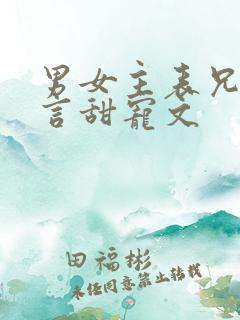 男女主表兄
言甜宠文
田福彬
未经同意禁止转载